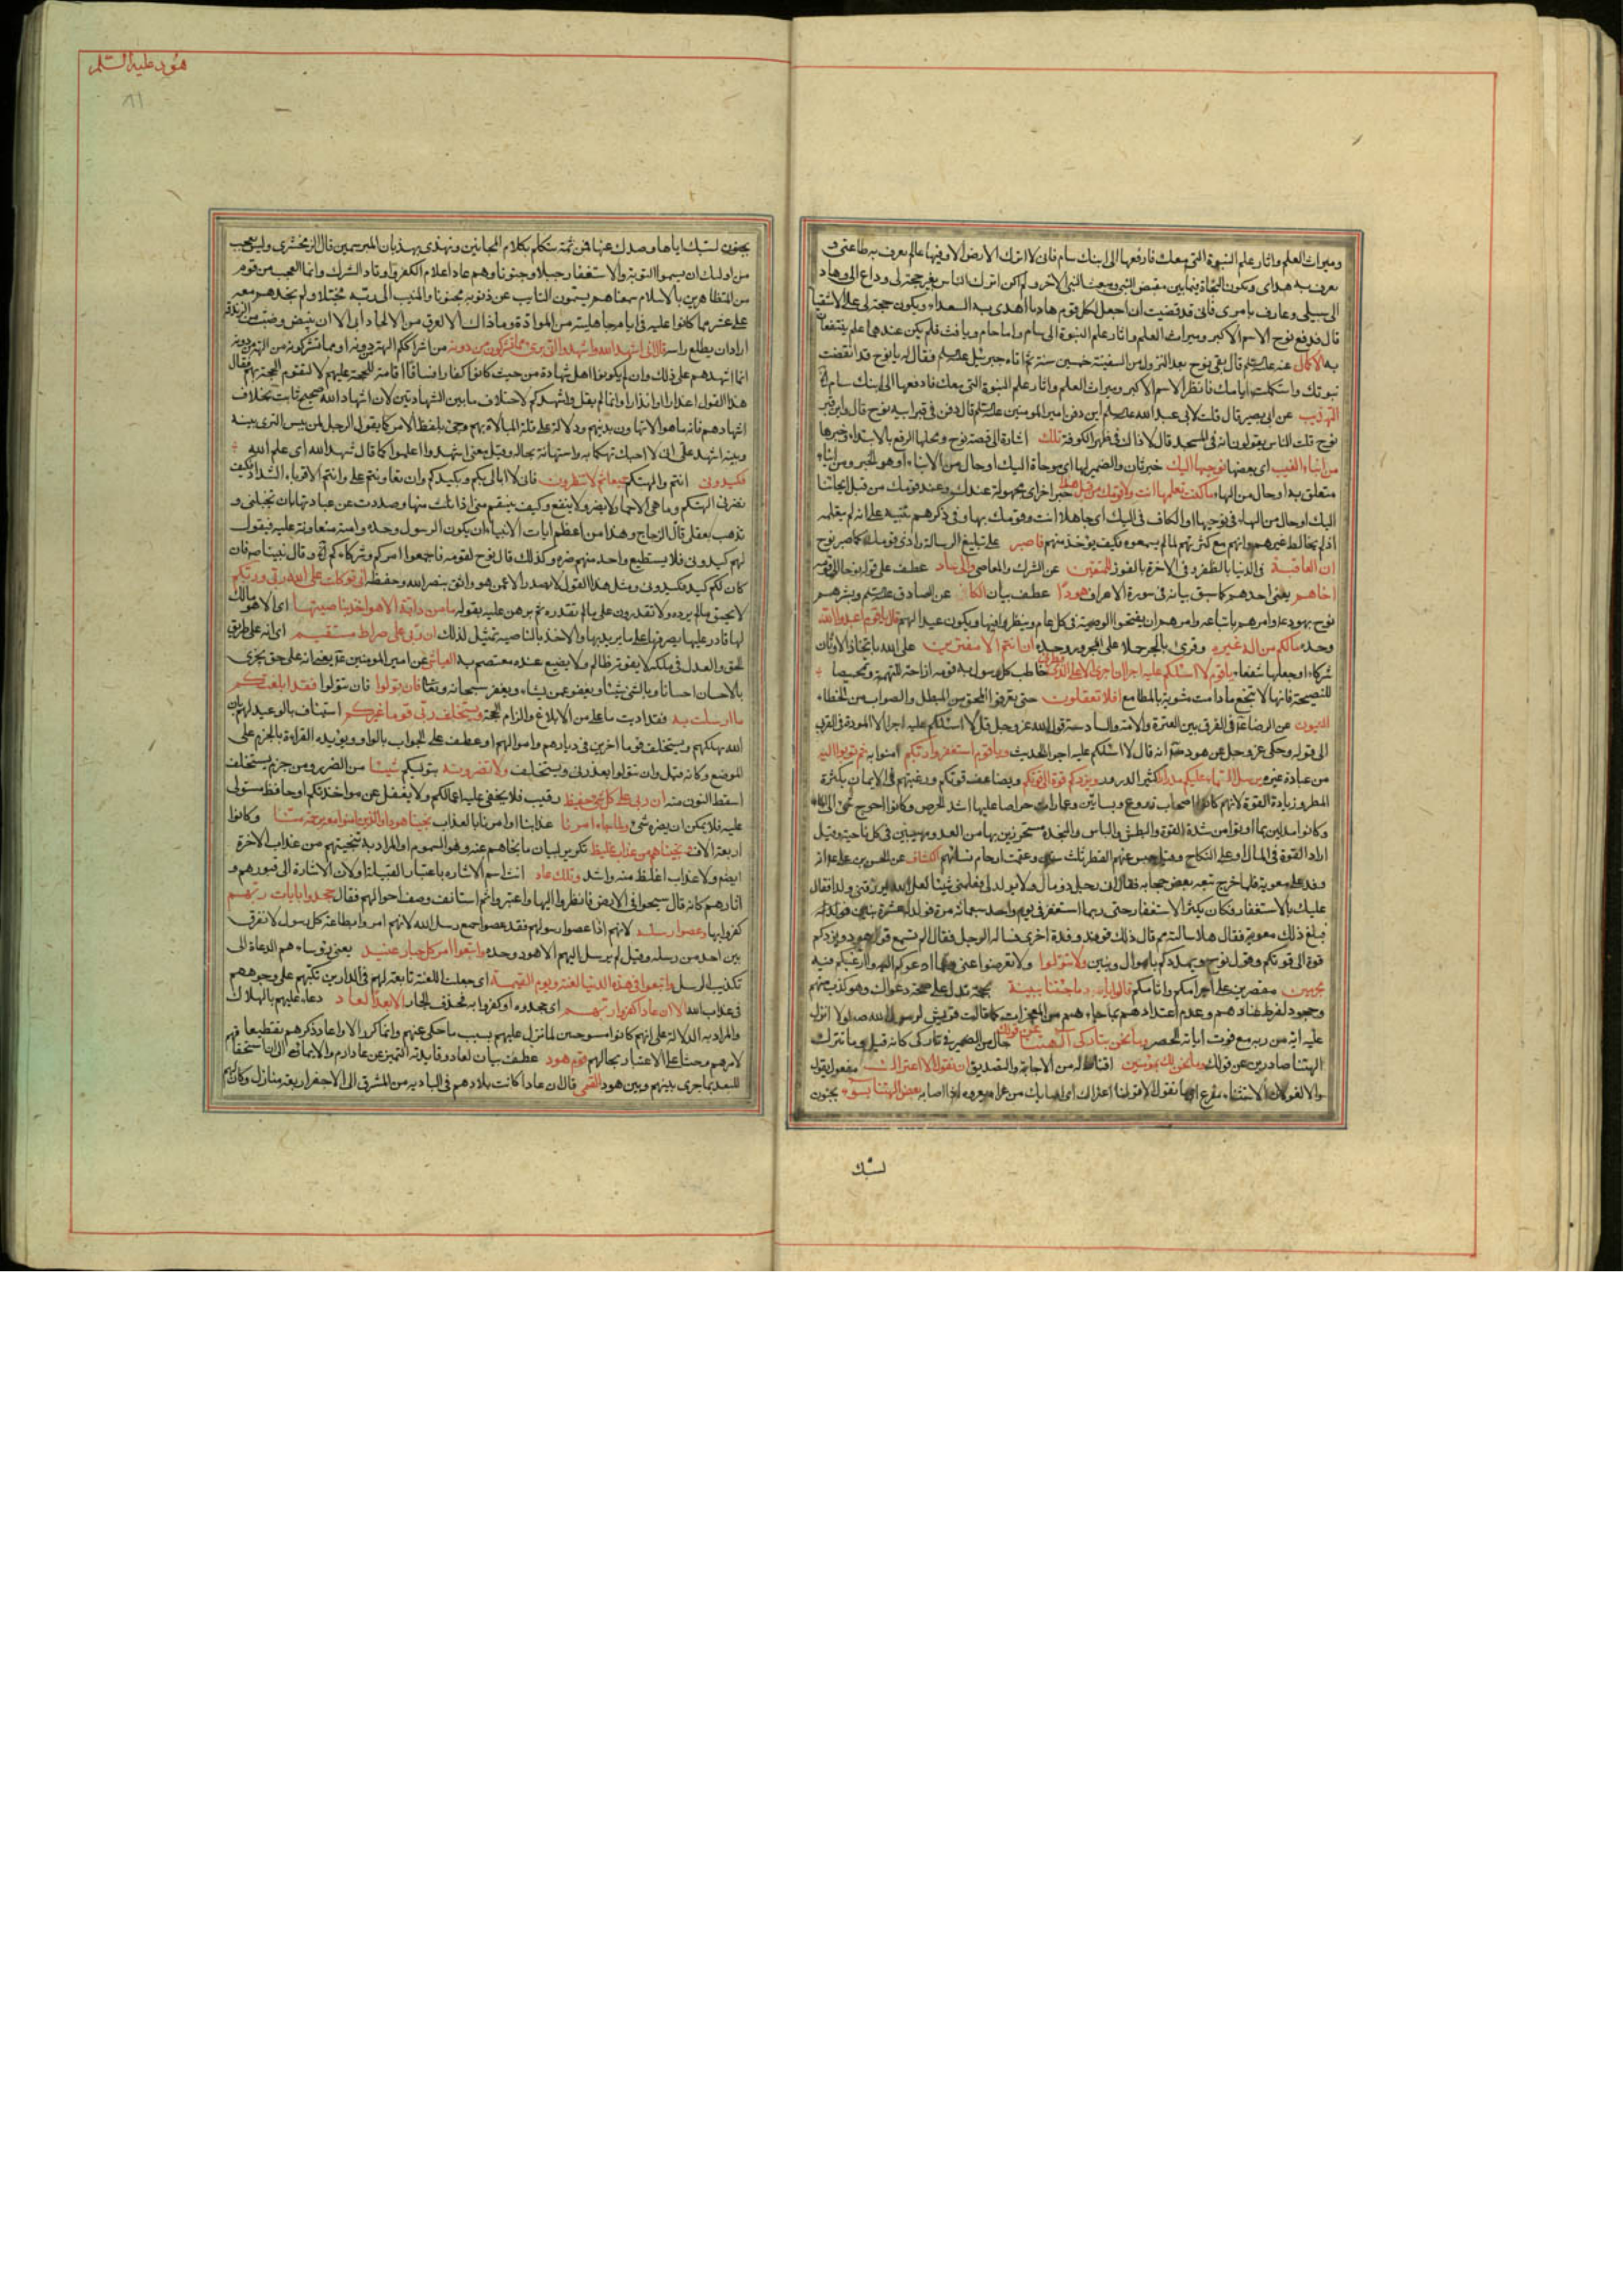 وميراث العلم واثار علم النبوة التى معك فارفعها الى ابنك سام فانى لا اترك الارض الا وفيها عالم يعرف به طاعتى و
يعرف به هداى ويكون النجاة فيما بين مقبض النبى ومبعث النبى الاخر ولم اكن اترك الناس بغير حجة لى وداع الى وهاد
الى سبيلى وعارف بامرى فانى قد قضيت ان اجعل لكل قوم هاديا اهدى به السعداء ويكون حجة لى على الاشقيا
قال فدفع نوح الاسم الاكبر وميراث العلم واثار علم النبوة الى سام واما حام ويافث فلم يكن عندهما علم ينتفعان
به الاكمال عنه قال بقى نوح بعد النزول من السفينة خمسين سنة ثم اتاه جبرئيل فقال له يا نوح قد انقضت
نبوتك واستكملت ايامك فانظر الاسم الاكبر وميراث العلم واثار علم النبوة التى معك فادفعها الى ابنك سام
التهذيب عن ابى بصير قال قلت لابى عبد الله اين دفن امير المومنين قال دفن فى قبر ابيه نوح قال واين قبر
نوح قلت الناس يقولون انه فى المسجد قال لا ذاك فى ظهر الكوفة تلك اشارة الى قصة نوح ومحلها الرفع بالابتداء وخبرها
من انباء الغيب اى بعضها نوحيها اليك خبر ثان والضمير لها اى موحاة اليك او حال من الانباء او هو الخبر ومن انباء
متعلق به او حال من الهاء ما كنت تعلمها انت ولا قومك من قبل هذا خبر اخر اى مجهولة عندك وعند قومك من قبل ايحائنا
اليك او حال من الهاء فى نوحيها او الكاف فى اليك اى جاهلا انت وقومك بها وفى ذكرهم تنبيه على انه لم يتعلمه
اذ لم يخالط غيرهم وانهم مع كثرتهم لما لم يسمعوه فكيف يوخذ منهم فاصبر على تبليغ الرسالة واذى قومك كما صبر نوح
ان العاقبة فى الدنيا بالظفر وفى الاخرة بالفوز للمتقين عن الشرك والمعاصى والى عاد عطف على قوله نوحا الى قومه
اخاهم يعنى احدهم كما سبق بيانه فى سورة الاعراف هودا عطف بيان
وحده ما لكم من اله غيره وقرئ بالجر حملا على المجرور وحده ان انتم الا مفترون على الله باتخاذ الاوثان
شركاء وجعلها شفعاء يا قوم لا اسئلكم عليه اجرا ان اجرى الا على الذى فطرنى خاطب كل رسول به قومه ازاحة للتهمة وتمحيصا
للنصيحة فانها لا تنجع ما دامت مشوبة بالمطامع افلا تعقلون حتى تعرفوا المحق من المبطل والصواب من الخطاء
العيون عن الرضا فى الفرق بين العترة والامة والسادسة قول الله عز وجل قل لا اسئلكم عليه اجرا الا المودة فى القربى
الى قوله وحكى عز وجل عن هود انه قال لا اسئلكم عليه اجرا الحديث ويا قوم استغفروا ربكم امنوا به ثم توبوا اليه
من عبادة غيره يرسل السماء عليكم مدرارا كثير الدرور ويزدكم قوة الى قوتكم ويضاعف قوتكم ورغبهم فى الايمان بكثرة
المطر وزيادة القوة لانهم كانوا اصحاب زروع وبساتين وعمارات حراصا عليها اشد الحرص وكانوا احوج شئ الى الماء
وكانوا مدلين بما اوتوا من شدة القوة والبطش والباس والنجدة متحرزين بها من العدو مهيبين فى كل ناحية وقيل
اراد القوة فى المال او على النكاح وقيل حبس عنهم القطر ثلث سنين وعقمت ارحام نسائهم الكشاف عن الحسن بن على انه
وفد على معوية فلما خرج تبعه بعض حجابه فقال انى رجل ذو مال ولا يولد لى فعلمنى شيئا لعل الله يرزقنى ولدا فقال
عليك بالاستغفار فكان يكثر الاستغفار حتى ربما استغفر فى يوم واحد سبعمائة مرة فولد له عشرة بنين
فبلغ ذلك معوية فقال هلا سالته مم قال ذلك فوفد وفدة اخرى فساله الرجل فقال الم تسمع قول هود ويزدكم
قوة الى قوتكم وقول نوح ويمددكم باموال وبنين ولا تتولوا ولا تعرضوا عنى وعما ادعوكم اليه وارغبكم فيه
مجرمين مصرين على اجرامكم واثامكم قالوا يا هود ما جئتنا ببينة بحجة تدل على صحة دعواك وهو كذب منهم
وجحود لفرط عنادهم وعدم اعتدادهم بما جاءهم من المعجزات كما قالت قريش لرسول الله لولا انزل
عليه اية من ربه مع فوت اياته الحصر وما نحن بتاركى الهتنا عن قولك حال من الضمير فى تاركى كانه قيل وما نترك
الهتنا صادرين عن قولك وما نحن لك بمومنين اقناط له من الاجابة والتصديق ان نقول الا اعتراك مفعول نقول
والا لغو اى ما نقول الا قولنا اعتراك اى اصابك من عراه يعروه اذا اصابه بعض الهتنا بسوء بجنون
لسبك
هود عليه السلم
بجنون لسبك اياها وصدك عنها فمن ثمة تتكلم بكلام المجانين وتهذى بهذيان المبرسمين قال الزمخشرى وليس بعجب
من اولئك ان يسموا التوبة والاستغفار خبلا وجنونا وهم عاد اعلام الكفر واوتاد الشرك وانما العجب من قوم
من المتظاهرين بالاسلام سمعناهم يسمون التائب عن ذنوبه مجنونا والمنيب الى ربه مختبلا ولم نجدهم معه
على عشر مما كانوا عليه فى ايام جاهليته من الموادة وما ذاك الا لعرق من الالحاد ابى الا ان ينبض وضب من الزندقة
اراد ان يطلع راسه قال انى اشهد الله واشهدوا انى برئ مما تشركون من دونه من اشراككم الهة من دونه او مما تشركونه من الهة من دونه
انما اشهدهم على ذلك وان لم يكونوا اهل شهادة من حيث كانوا كفارا فساقا اقامة للحجة عليهم لا لتقوم الحجة بهم فقال
هذا القول اعذارا وانذارا وانما لم يقل واشهدكم لاختلاف ما بين الشهادتين لان اشهاد الله صحيح ثابت بخلاف
اشهادهم فانه ما هو الا تهاون بدينهم ودلالة على قلة المبالاة بهم وجئ بلفظ الامر كما يقول الرجل لمن يبس الثرى بينه
وبينه اشهد على انى لا احبك تهكما به واستهانة بحاله وقيل يعنى اشهدوا اعلموا كما قال شهد الله اى علم الله
فكيدونى انتم والهتكم جميعا ثم لا تنظرون فانى لا ابالى بكم وبكيدكم وان تعاونتم على وانتم الاقوياء الشداد فكيف
تضرنى الهتكم وما هى الا جماد لا يضر ولا ينفع وكيف ينتقم منى اذا نلت منها وصددت عن عبادتها بان تخبلنى و
تذهب بعقلى قال الزجاج وهذا من اعظم ايات الانبياء ان يكون الرسول وحده وامته متعاونة عليه فيقول
لهم كيدونى فلا يستطيع واحد منهم ضره وكذلك قال نوح لقومه فاجمعوا امركم وشركاءكم وقال نبينا فان
كان لكم كيد فكيدونى ومثل هذا القول لا يصدر الا عمن هو واثق بنصر الله وحفظه انى توكلت على الله ربى وربكم
لا يحيق بى ما لم يرده ولا تقدرون على ما لم يقدره ثم برهن عليه بقوله ما من دابة الا هو اخذ بناصيتها اى الا هو مالك
لها قادر عليها يصرفها على ما يريد بها والاخذ بالناصية تمثيل لذلك ان ربى على صراط مستقيم اى انه على طريق
الحق والعدل فى ملكه لا يفوته ظالم ولا يضيع عنده معتصم به العياشى عن امير المومنين يعنى انه على حق يجزى
بالاحسان احسانا وبالسيئ سيئا ويعفو عمن يشاء ويغفر سبحانه وتعالى فان تولوا فان تتولوا فقد ابلغتكم
ما ارسلت به فقد اديت ما على من الابلاغ والزام الحجة ويستخلف ربى قوما غيركم استيناف بالوعيد لهم بان
الله يهلكهم ويستخلف قوما اخرين فى ديارهم واموالهم او عطف على الجواب بالواو ويؤيده القراءة بالجزم على
الموضع وكانه قيل وان تتولوا يعذرنى ويستخلف ولا تضرونه بتوليكم شيئا من الضرر ومن جزم يستخلف
اسقط النون منه ان ربى على كل شئ حفيظ رقيب فلا يخفى عليه اعمالكم ولا يغفل عن مواخذتكم او حافظ مستولى
عليه فلا يمكن ان يضره شئ ولما جاء امرنا عذابنا او امرنا بالعذاب نجينا هودا والذين امنوا معه برحمة منا وكانوا
اربعة الاف ونجيناهم من عذاب غليظ تكرير لبيان ما نجاهم عنه وهو السموم او المراد به تنجيتهم من عذاب الاخرة
ايضا ولا عذاب اغلظ منه واشد وتلك عاد انث اسم الاشارة باعتبار القبيلة او لان الاشارة الى قبورهم و
اثارهم كانه قال سيحوا فى الارض فانظروا اليها واعتبروا ثم استانف وصف احوالهم فقال جحدوا بايات ربهم
كفروا بها وعصوا رسله لانهم اذا عصوا رسولهم فقد عصوا جميع رسل الله لانهم امروا بطاعة كل رسول لا نفرق
بين احد من رسله وقيل لم يرسل اليهم الا هود وحده واتبعوا امر كل جبار عنيد يعنى رؤساءهم الدعاة الى
تكذيب الرسل واتبعوا فى هذه الدنيا لعنة ويوم القيمة اى جعلت اللعنة تابعة لهم فى الدارين تكبهم على وجوههم
فى عذاب الله الا ان عادا كفروا ربهم اى جحدوه او كفروا به بحذف الجار الا بعدا لعاد دعاء عليهم بالهلاك
والمراد به الدلالة على انهم كانوا مستوجبين لما نزل عليهم بسبب ما حكى عنهم وانما كرر الا واعاد ذكرهم تفظيعا
لامرهم وحثا على الاعتبار بحالهم قوم هود عطف بيان لعاد وفايدته التميز عن عاد ارم والايماء الى ان استحقاقهم
للبعد بما جرى بينهم وبين هود القمى قال ان عادا كانت بلادهم فى البادية من المشرق الى الاجفر اربعة منازل وكان لهم